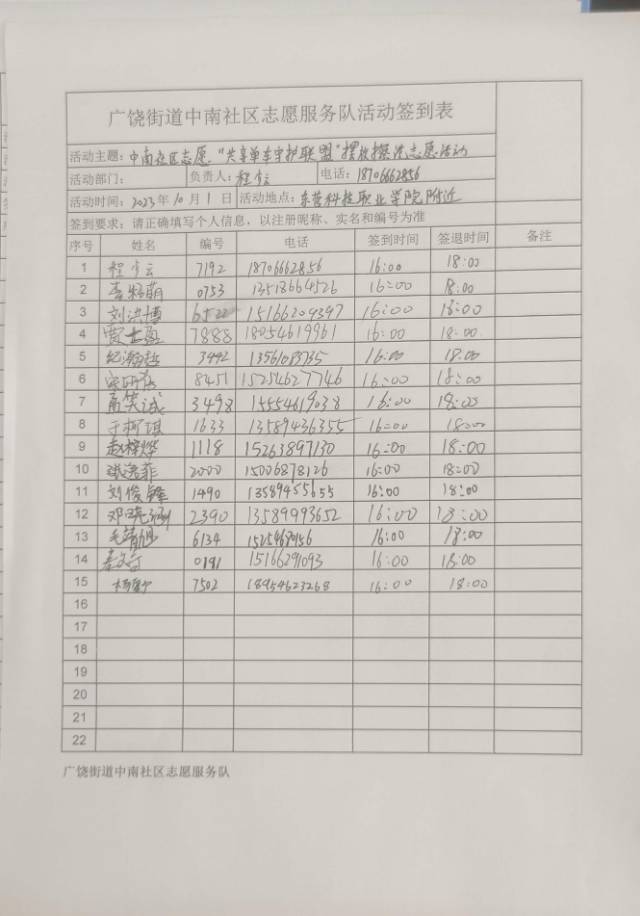 广饶街道中南社区志愿服务队活动签到表
活动主题：中南社区志愿"共享单车守护联盟"摆放擦洗志愿活动
活动部门： 负责人：程 云 电话：18706662856
活动时间：2023年10月1日 活动地点：东营科技职业学院附近
签到要求：请正确填写个人信息，以注册昵称、实名和编号为准
序号 姓名 编号 电话 签到时间 签退时间 备注
1 程 云 7192 18706662856 16:00 18:00
2 李 萌 0753 13518664526 16:00 18:00
3 刘洪博 15166209397 16:00 18:00
4 贾 7888 18054619961 16:00 18:00
5 纪 3442 16:00 18:00
6 8451 15254627746 16:00 18:00
7 高笑诚 3498 15554619038 16:00 18:00
8 于柯琪 1633 13589436355 16:00 18:00
9 赵梓烨 1118 15263897130 16:00 18:00
10 张逸菲 2000 15006878126 16:00 18:00
11 刘俊锋 1490 13589455655 16:00 18:00
12 邓 涵 2390 13589993652 16:00 18:00
13 毛 旭 6134 16:00 18:00
14 0191 15166291093 16:00 18:00
15 杨 7502 18954623268 16:00 18:00
16
17
18
19
20
21
22
广饶街道中南社区志愿服务队